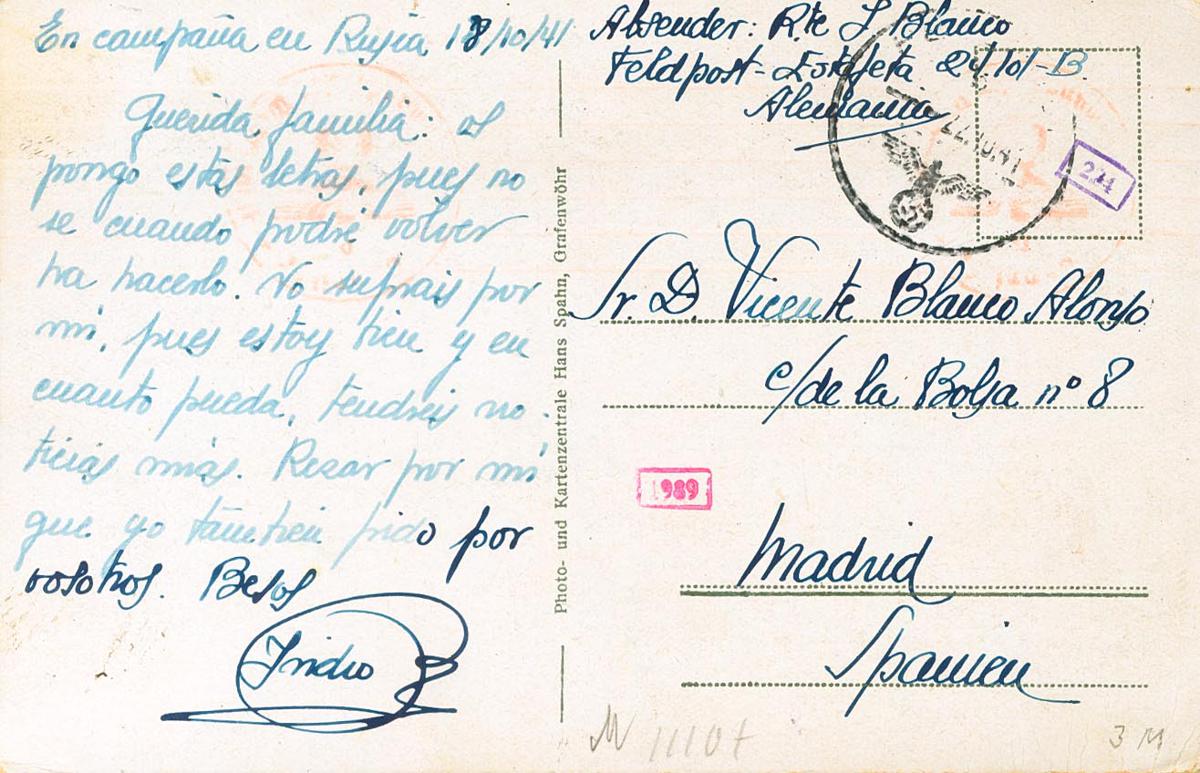 En campaña en Rusia 18/10/41
Querida familia: os
pongo estas letras, pues no
se cuando podré volver
ha hacerlo. No sufrais por
mi, pues estoy bien y en
cuanto pueda, tendreis no-
ticias mias. Rezar por mi
que yo tambien pido por
vosotros. Besos
Isidro
Photo- und Kartenzentrale Hans Spahn, Grafenwöhr
Absender: Rte I Blanco
Feldpost-Estafeta
Alemania
22.10.41
224
Sr. D. Vicente Blanco Alonso
c/de la Bolsa nº 8
1989
Madrid
Spanien
3 M